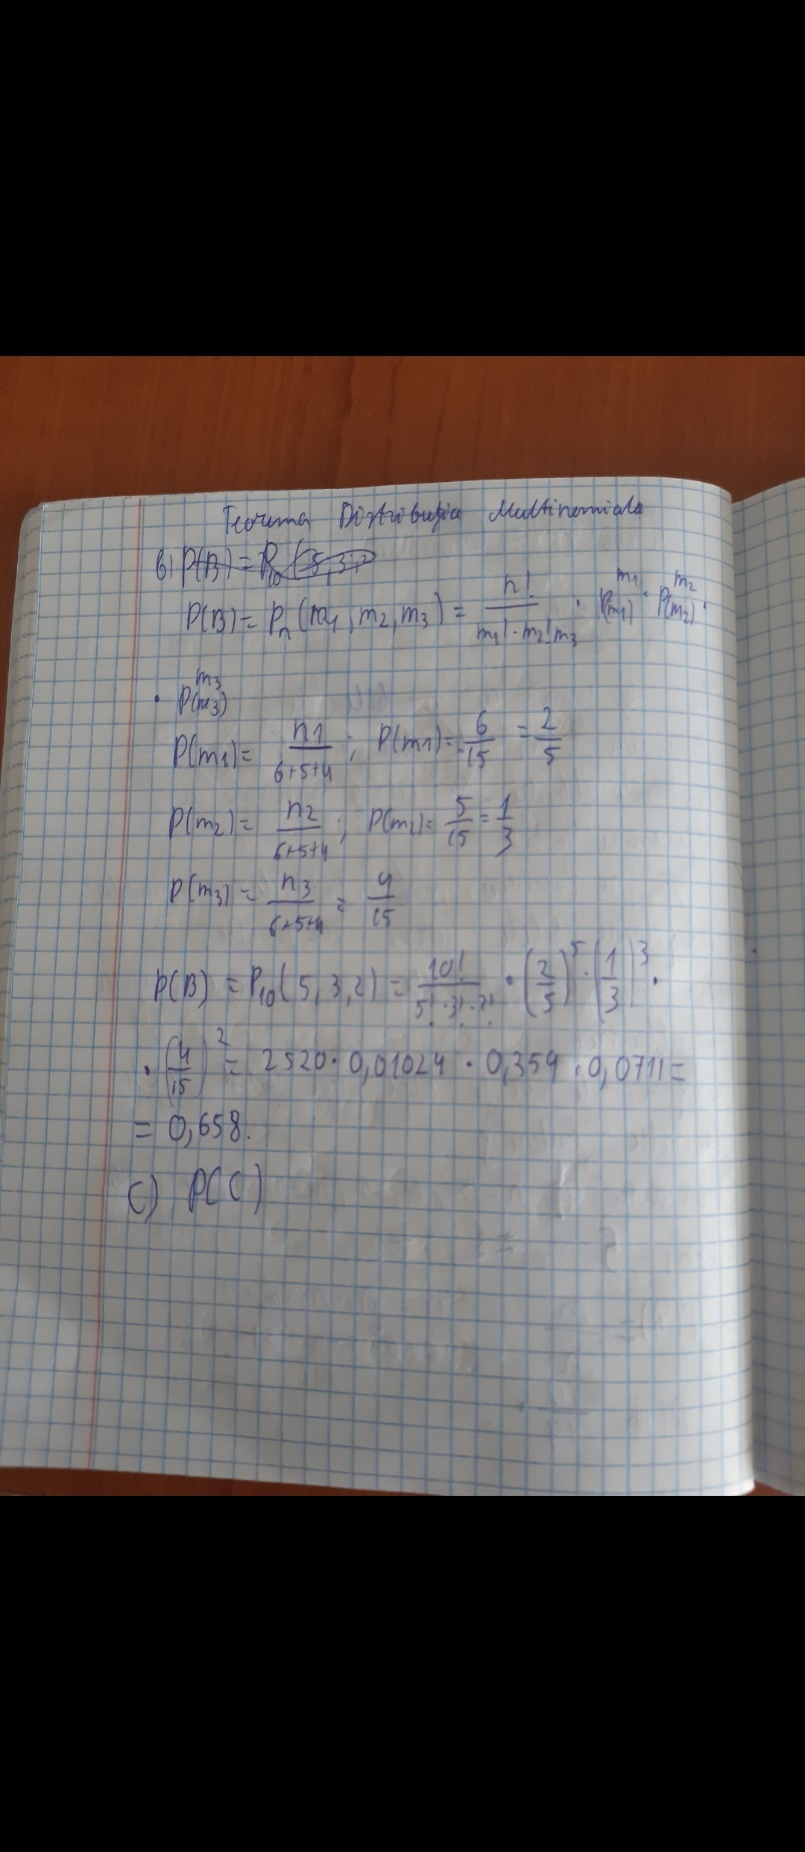 Teorema Distribuția Multinomiala
B) P(B) = P₁₀ (5,3,2
P(B) = Pₙ(m₁, m₂, m₃) = n! / m₁! · m₂! m₃ · P(m₁)^m₁ · P(m₂)^m₂ ·
· P(m₃)^m₃
P(m₁) = n1 / 6+5+4 ; P(m1) = 6/15 = 2/5
P(m₂) = n2 / 6+5+4 ; P(m₂) = 5/15 = 1/3
P(m₃) = n3 / 6+5+4 = 4/15
P(B) = P₁₀(5,3,2) = 10! / 5! · 3! · 2! · (2/5)^5 · (1/3)^3 ·
· (4/15)^2 = 2520 · 0,01024 · 0,354 · 0,0711 =
= 0,658.
C) P(C)